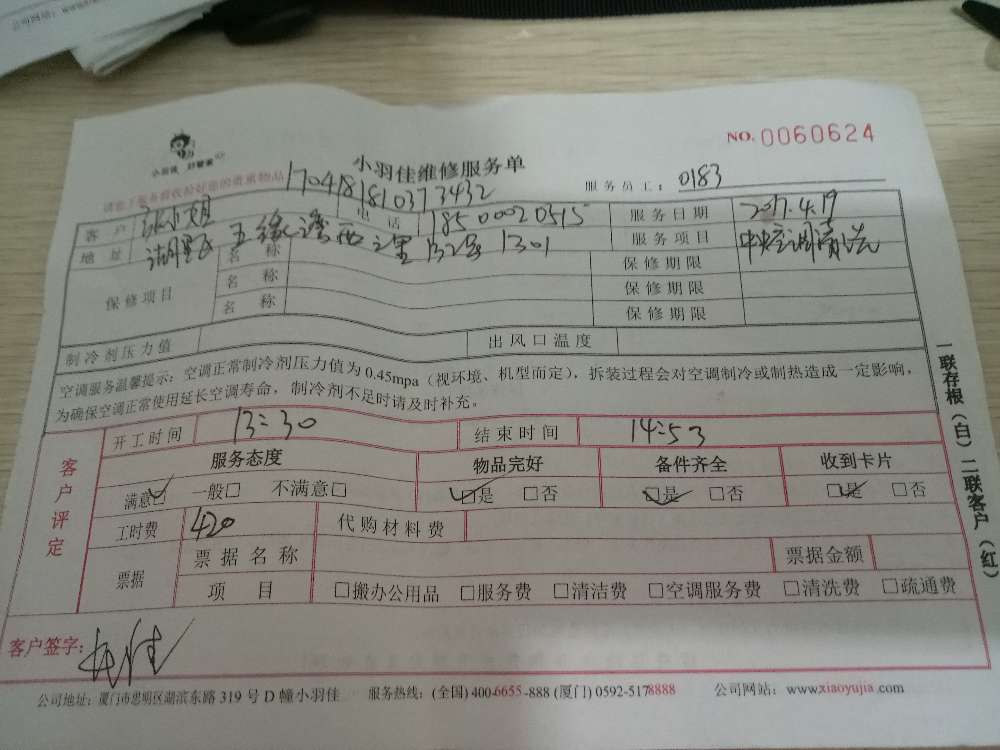 NO. 0060624
小羽佳 好管家
小羽佳维修服务单
服务员工: 0183
1704181810373432
客户 张小姐 电话 18500020515 服务日期 2017.4.19
地址 湖里区 里 1301 服务项目 中央空调清洗
保修项目 名称 保修期限
名称 保修期限
名称 保修期限
制冷剂压力值 出风口温度
空调服务温馨提示: 空调正常制冷剂压力值为 0.45mpa (视环境、机型而定), 拆装过程会对空调制冷或制热造成一定影响,
为确保空调正常使用延长空调寿命, 制冷剂不足时请及时补充。
客户评定
开工时间 13:30 结束时间 14:53
服务态度 物品完好 备件齐全 收到卡片
满意☑ 一般□ 不满意□ ☑是 □否 ☑是 □否 ☑是 □否
工时费 420 代购材料费
票据 票据名称 票据金额
项目 □搬办公用品 □服务费 □清洁费 □空调服务费 □清洗费 □疏通费
客户签字:
一联存根(白) 二联客户(红)
公司地址: 厦门市思明区湖滨东路 319 号 D 幢小羽佳 服务热线: (全国) 400-6655-888 (厦门) 0592-5178888 公司网站: www.xiaoyujia.com